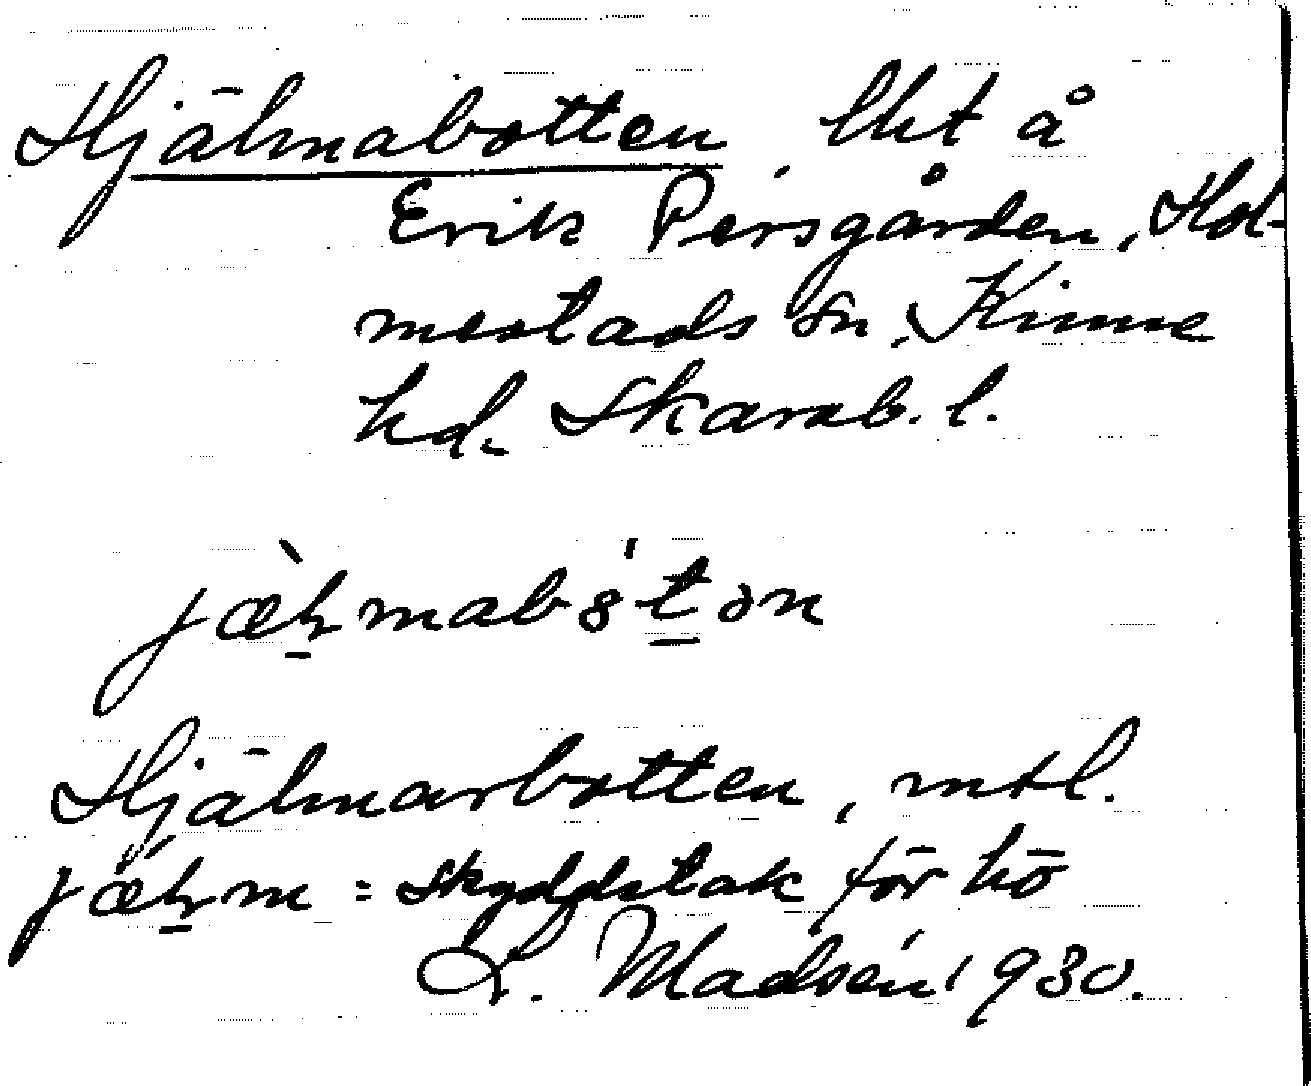 Hjälmabotten, lht å
Erik Persgården, Hol-
mestads sn, Kinne
hd. Skarab. l.
Hjälmarbotten, mtl.
= skyddstak för hö
L. Madsén 1930.